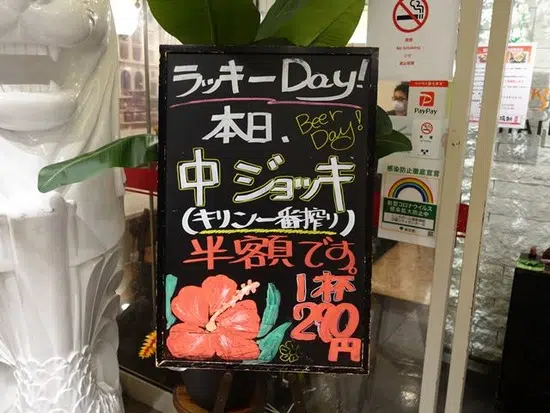 ラッキーDay!
本日、
Beer
Day!
中ジョッキ
(キリン一番搾り)
半額です。
1杯
290
円
No Smoking
PayPay
感染防止徹底宣言
新型コロナウイルス